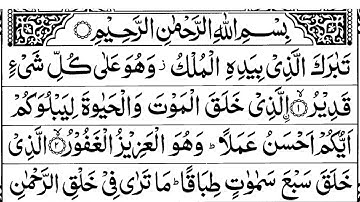 بِسْمِ اللّٰهِ الرَّحْمٰنِ الرَّحِيْمِ ۝
تَبٰرَكَ الَّذِىْ بِيَدِهِ الْمُلْكُ ز وَهُوَ عَلٰى كُلِّ شَىْءٍ
قَدِيْرُ ۝١ اۨلَّذِىْ خَلَقَ الْمَوْتَ وَالْحَيٰوةَ لِيَبْلُوَكُمْ
اَيُّكُمْ اَحْسَنُ عَمَلًا ؕ وَهُوَ الْعَزِيْزُ الْغَفُوْرُ ۝٢ الَّذِىْ
خَلَقَ سَبْعَ سَمٰوٰتٍ طِبَاقًا ؕ مَا تَرٰى فِىْ خَلْقِ الرَّحْمٰنِ